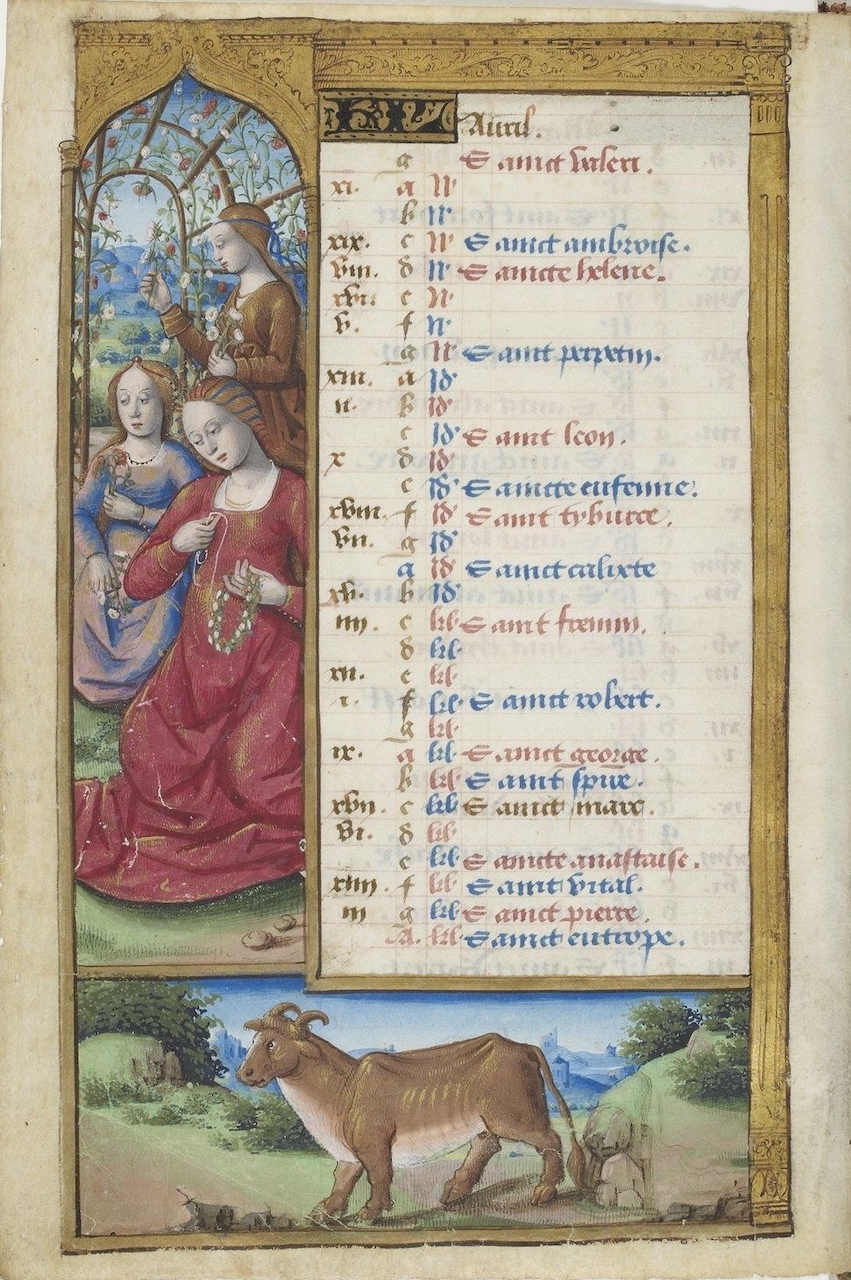 Auril.
g Sainct valeri.
xi. a N
b N
xix. c N Sainct ambroise.
viii. d N Saincte heleine.
xvi. e N
v. f N
g N Sainct perpetin.
xiii. a Id
ii. b Id
c Id Sainct leon.
x d Id
e Id Saincte eufemie.
xviii. f Id Sainct tyburce.
vii. g Id
a Id Sainct calixte
xv. b Id
iiii. c kl Sainct
d kl
xii. e kl
i. f kl Sainct robert.
g kl
ix. a kl Sainct george.
b kl Sainct spire.
xvii. c kl Sainct marc.
vi. d kl
e kl Saincte anastaise.
xiiii. f kl Sainct vital.
iii g kl Sainct pierre.
A. kl Sainct eutrope.